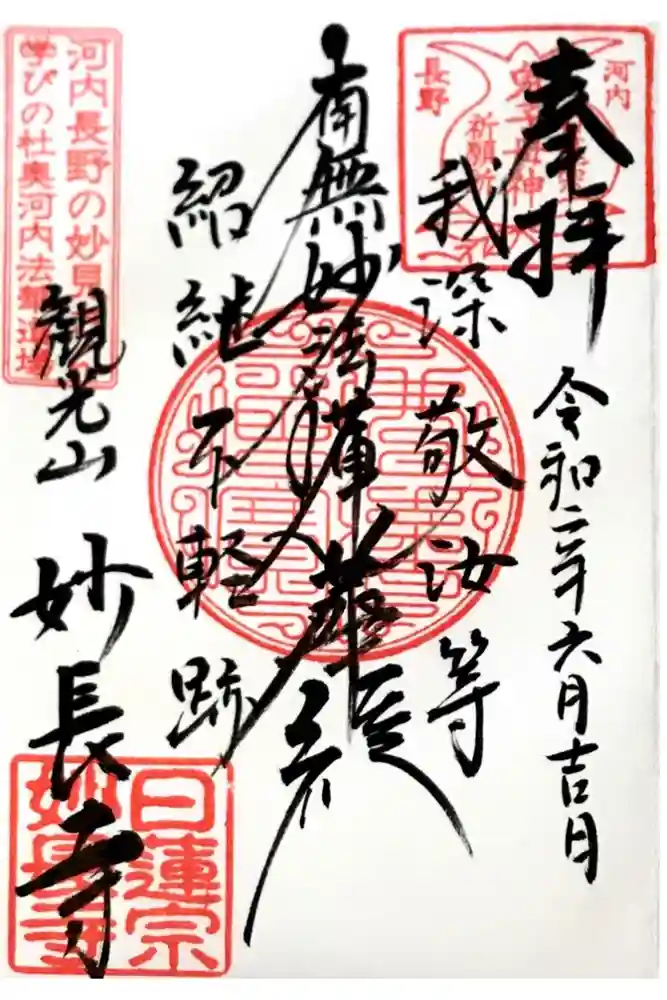 奉拝
令和二年六月吉日
河内
長野
鬼子母神
祈願所
我深敬汝等
南無妙法蓮華経
紹継不軽跡
河内長野の妙見
学びの杜奥河内法華道場
観光山
妙長寺
日蓮宗
妙長寺